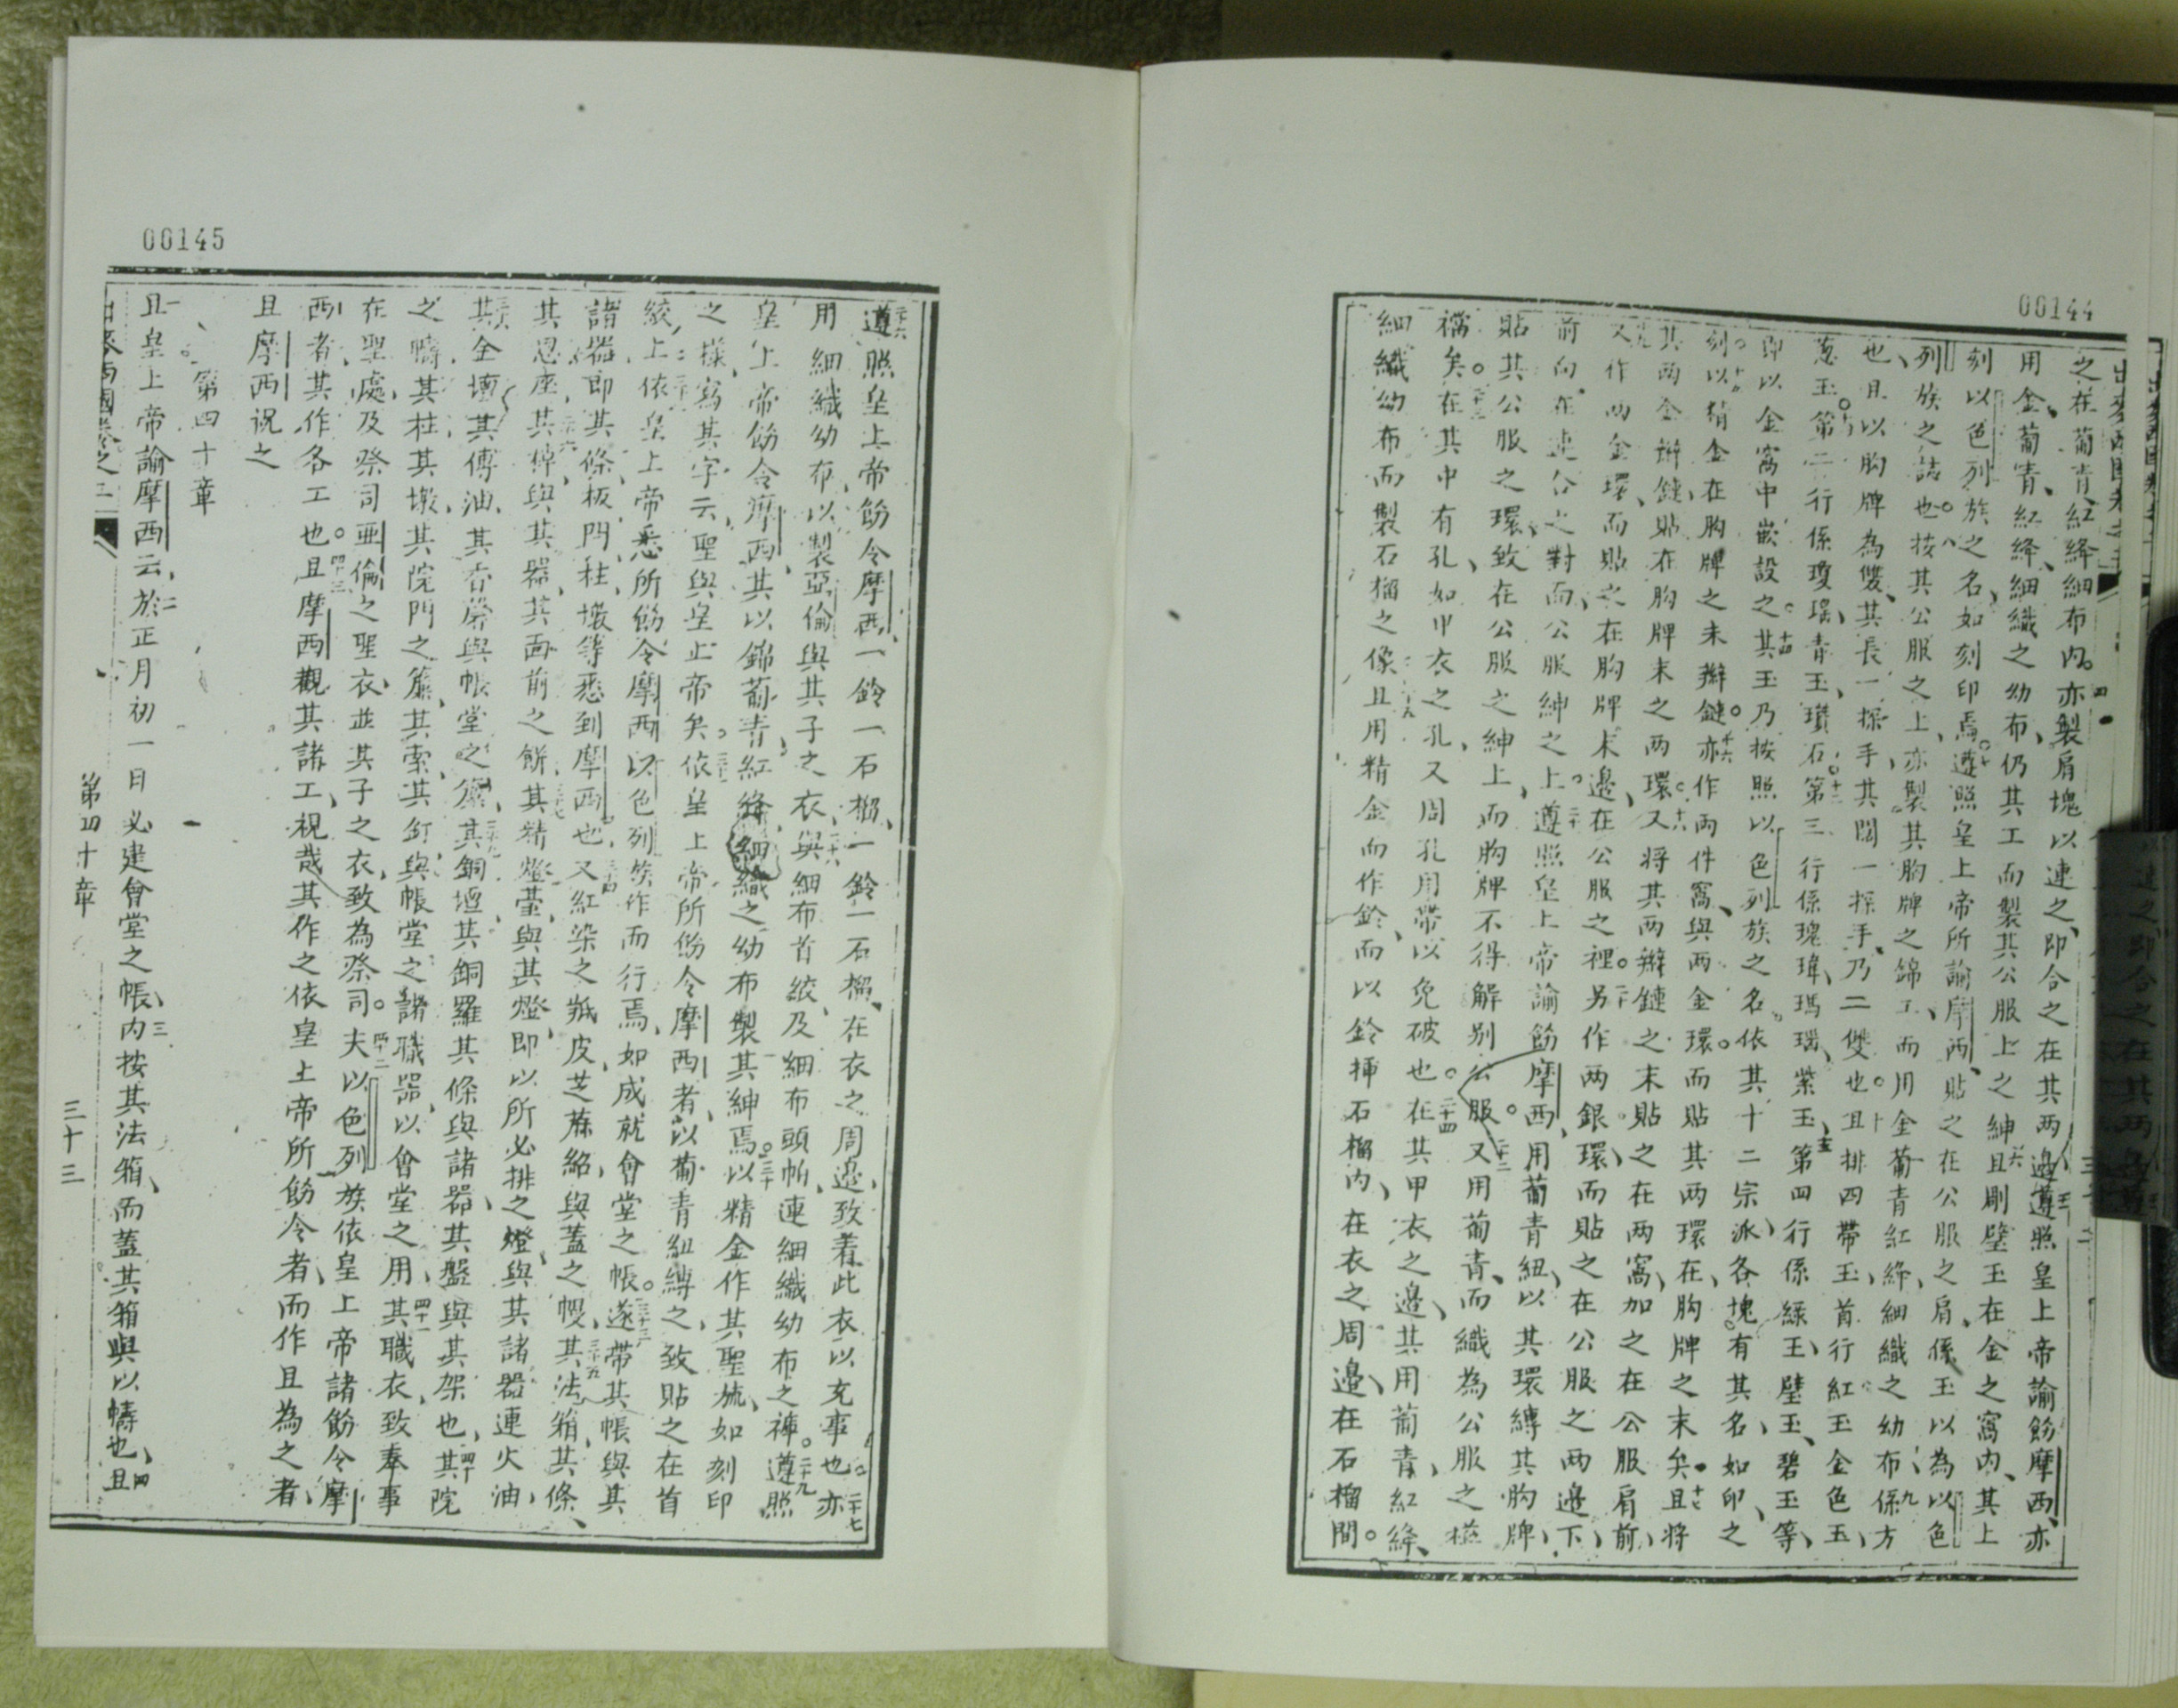 00144
之在葡青紅絳細布內。亦製肩塊以連之、即合之在其两邊、遵照皇上帝諭飭摩西、亦
用金葡青、紅絳細織之幼布、仍其工而製其公服上之紳、且刷璧玉在金之窩內、其上
刻以色列族之名、如刻印焉。遵照皇上帝所諭摩西、貼之在公服之肩、係玉以為以色
列族之誌也。按其公服之上、亦製其胸牌之錦工、而用金葡青紅絳細織之幼布、係方
也、且以胸牌為雙、其長一探手、其闊一探手、乃二雙也。且排四帶玉、首行紅玉金色玉、
葱玉。第二行係瓊瑤、青玉、瓚石。第三行係瑰瑋、瑪瑙、紫玉、第四行係綠玉、璧玉、碧玉等、
即以金窩中嵌設之。其玉乃按照以色列族之名、依其十二宗派、各塊有其名、如印之
刻。以精金在胸牌之末辮鏈。亦作两件窩、與两金環。而貼其两環在胸牌之末矣。且将
其两金辮鏈、貼在胸牌末之两環。又将其两辮鏈之末、貼之在两窩、加之在公服肩前、
又作两金環、而貼之在胸牌末邊、在公服之裡。另作两銀環、而貼之在公服之两邊下、
前向在連合之對面、公服紳之上。遵照皇上帝諭飭摩西、用葡青紐以其環縛其胸牌、
貼其公服之環、致在公服之紳上、而胸牌不得解别公服。又用葡青、而織為公服之
矣。在其中有孔、如甲衣之孔、又周孔用帶以免破也。在其甲衣之邊、其用葡青、紅絳、
細織幼布而製石榴之像、且用精金而作鈴、而以鈴揷石榴內、在衣之周邊、在石榴間。
00145
遵照皇上帝飭令摩西、一鈴一石榴、一鈴一石榴、在衣之周邊、致着此衣以充事也。亦
用細織幼布、以製亞倫與其子之衣、與細布首紋、及細布頭帕、連細織幼布之褲。遵照
皇上帝飭令摩西、其以錦葡青紅絳、細織之幼布製其紳焉。以精金作其聖旒、如刻印
之樣、寫其字云、聖與皇上帝矣。依皇上帝所飭令摩西者、以葡青紐縛之、致貼之在首
紋上。依皇上帝悉所飭令摩西、以色列族作而行焉、如成就會堂之帳。遂帶其帳、與其
諸器、即其條、板、閂、柱、墩等、悉到摩西也、又紅染之羝皮、芝蔴、與蓋之幔、其法箱、其條、
其恩座、其棹、與其器、其面前之餅、其精燈臺、與其燈、即以所必排之燈、與其諸器連火油、
其金壇、其傅油、其香、與帳堂之簾、其銅壇、其銅羅、其條與諸器、其盤與其架也、其院
之幬、其柱、其墩、其院門之簾、其索、其釘、與帳堂之諸職器、以會堂之用、其職衣、致奉事
在聖處、及祭司亞倫之聖衣、並其子之衣、致為祭司。夫以色列族依皇上帝諸飭令摩
西者、其作各工也。且摩西觀其諸工、視哉、其作之依皇上帝所飭令者、而作且為之者、
且摩西祝之
第四十章
且皇上帝諭摩西云、於正月初一日必建會堂之帳、內按其法箱、而蓋其箱與以幬也、且
第四十章
三十三